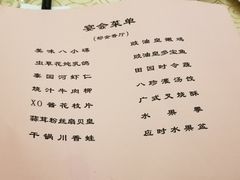 宴会菜单
(综合客厅)
美味八小碟
虫草花炖乳鸽
泰国河虾仁
烧汁牛肉柳
XO酱花枝片
蒜茸粉丝扇贝皇
干锅川香蛙
豉油皇嫩鸡
豉油皇多宝鱼
田园时令蔬
八珍灌汤饺
广式叉烧酥
水果拳
应时水果盆